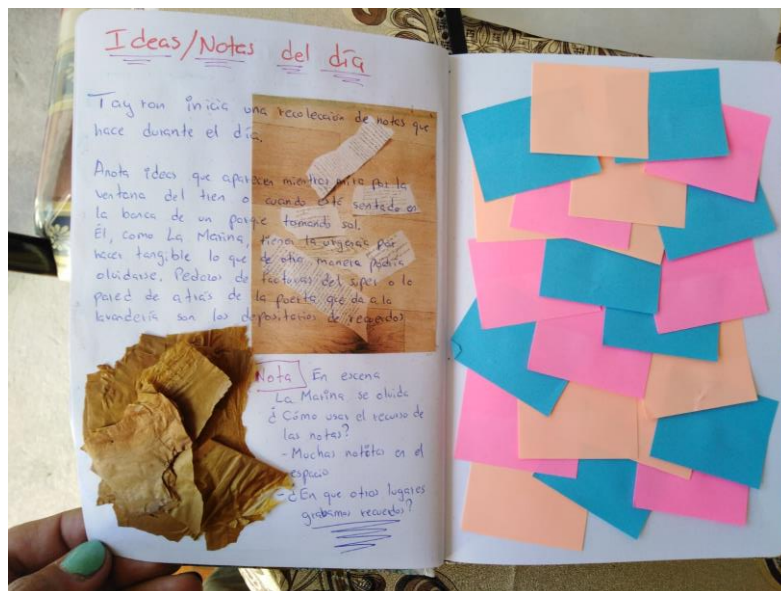 Ideas/Notas del día
Tayron inicia una recolección de notas que
hace durante el día.
Anota ideas que aparecen mientras mira por la
ventana del tren o cuando esté sentado en
la banca de un parque tomando sol.
Él, como La Marina, tienen la urgencia por
hacer tangible lo que de otra manera podría
olvidarse. Pedazos de facturas del super o la
pared de atrás de la puerta que da a la
lavandería son los depositarios de recuerdos
Nota En escena
La Marina se olvida
¿Cómo usar el recurso de
las notas?
- Muchas notitas en el
espacio
- ¿En que otros lugares
grabamos recuerdos?